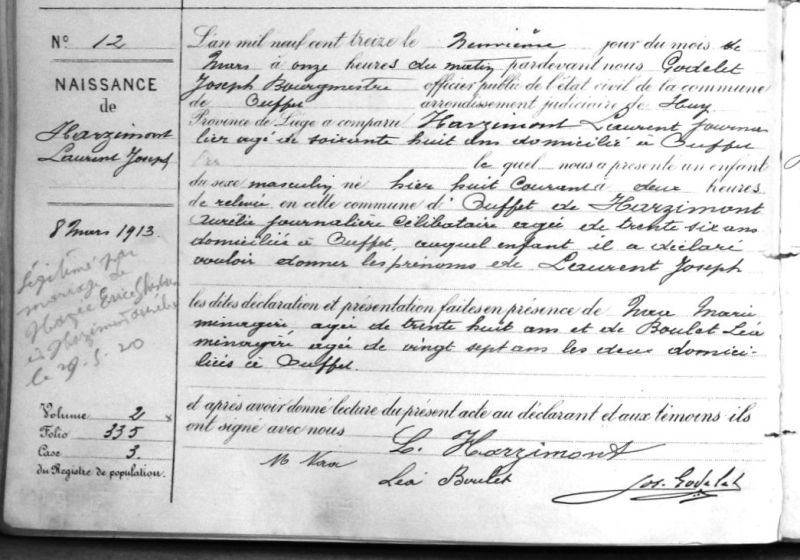 N° 12
NAISSANCE
de
Harzimont
Laurent Joseph
8 Mars 1913.
Légitimé par
mariage de
à Harzimont Aurélie
le 29.5.20
Volume 2
Folio 335
Case 3.
du Registre de population.
L'an mil neuf cent treize le Neuvième jour du mois de
Mars à onze heures du matin pardevant nous Godelet
Joseph Bourgmestre officier public de l'état civil de la commune
de Ouffet arrondissement judiciaire de Huy
Province de Liège a comparu Harzimont Laurent journa
lier agé de soixante huit ans domicilié à Ouffet
le quel nous a présenté un enfant
du sexe masculin né hier huit courant à deux heures
de relevée en cette commune d'Ouffet de Harzimont
Aurélie journalière célibataire agée de trente six ans
domiciliée à Ouffet, auquel enfant il a déclaré
vouloir donner les prénoms de Laurent Joseph
les dites déclaration et présentation faites en présence de Naa Marie
ménagère, agée de trente huit ans et de Boulet Léa
ménagère agée de vingt sept ans les deux domici-
liées à Ouffet.
et après avoir donné lecture du présent acte au déclarant et aux témoins ils
ont signé avec nous L. Harzimont
M Naa
Léa Boulet Jos. Godelet